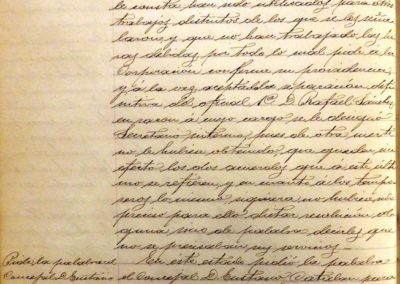 le consta han sido utilizados para otros
trabajos, distintos de los que se les seña
laron, y que no han trabajado las ho
ras debidas, por todo lo cual pide a la
Corporación confirme su providencia,
y á la vez, aceptada la separación defi
nitiva del oficial 1º D. Rafael Sánchez
en razón á cuyo cargo se le designó
Secretario interino, pues de otra suerte
no le hubiera obtenido, que queden sin
efecto los dos acuerdos que á este últi
mo se refieren, y en cuanto á los tempo
reros lo mismo, siquiera no hubiere sido
preciso para ello dictar resolución al
guna sino de palabra decirles que
no se precisaban sus servicios.
Pide la palabra el
Concejal D. Eustasio
En este estado pidió la palabra
el Concejal D. Eustasio Catalán para